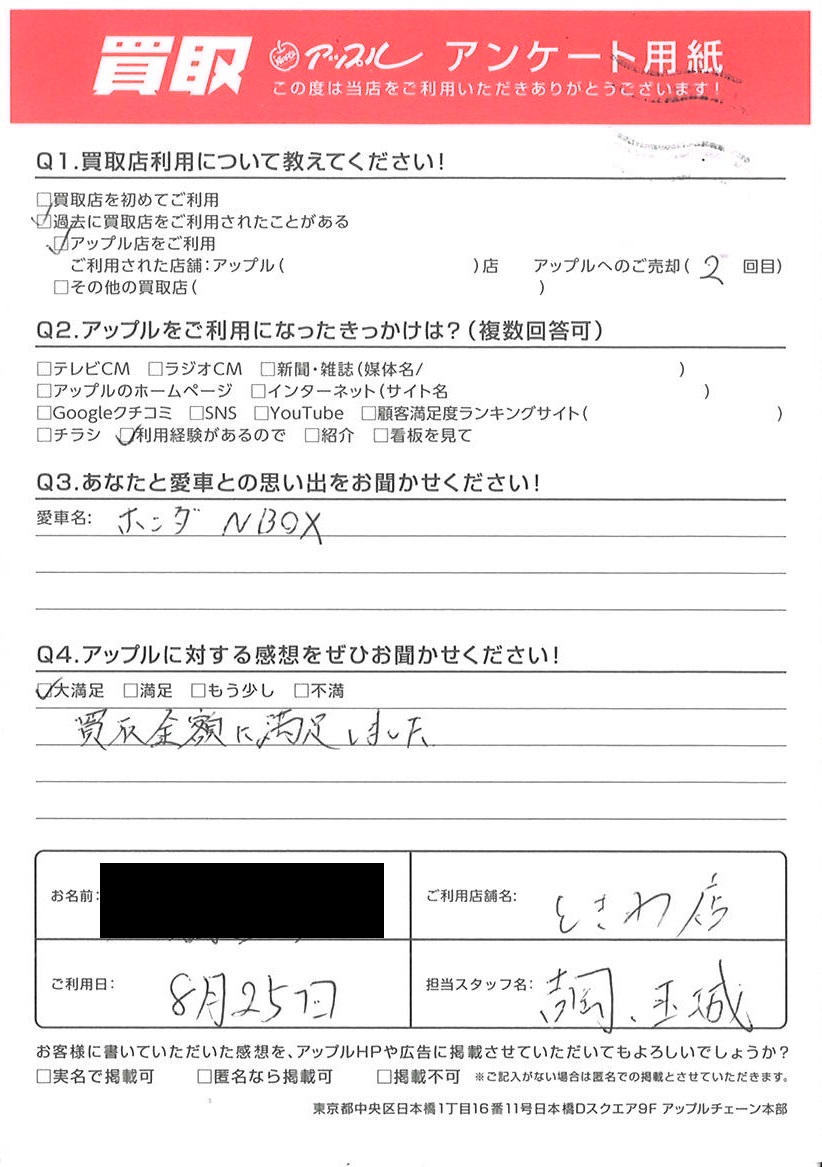 買取 アップル アンケート用紙
この度は当店をご利用いただきありがとうございます!
Q1.買取店利用について教えてください!
□買取店を初めてご利用
☑過去に買取店をご利用されたことがある
☑アップル店をご利用
ご利用された店舗:アップル( )店 アップルへのご売却( 2 回目)
□その他の買取店( )
Q2.アップルをご利用になったきっかけは?(複数回答可)
□テレビCM □ラジオCM □新聞・雑誌(媒体名/ )
□アップルのホームページ □インターネット(サイト名 )
□Googleクチコミ □SNS □YouTube □顧客満足度ランキングサイト( )
□チラシ ☑利用経験があるので □紹介 □看板を見て
Q3.あなたと愛車との思い出をお聞かせください!
愛車名: ホンダ NBOX
Q4.アップルに対する感想をぜひお聞かせください!
☑大満足 □満足 □もう少し □不満
買取金額に満足しました
お名前: ご利用店舗名: ときわ店
ご利用日: 8月25日 担当スタッフ名: 吉岡、玉城
お客様に書いていただいた感想を、アップルHPや広告に掲載させていただいてもよろしいでしょうか?
□実名で掲載可 □匿名なら掲載可 □掲載不可 ※ご記入がない場合は匿名での掲載とさせていただきます。
東京都中央区日本橋1丁目16番11号日本橋Dスクエア9F アップルチェーン本部